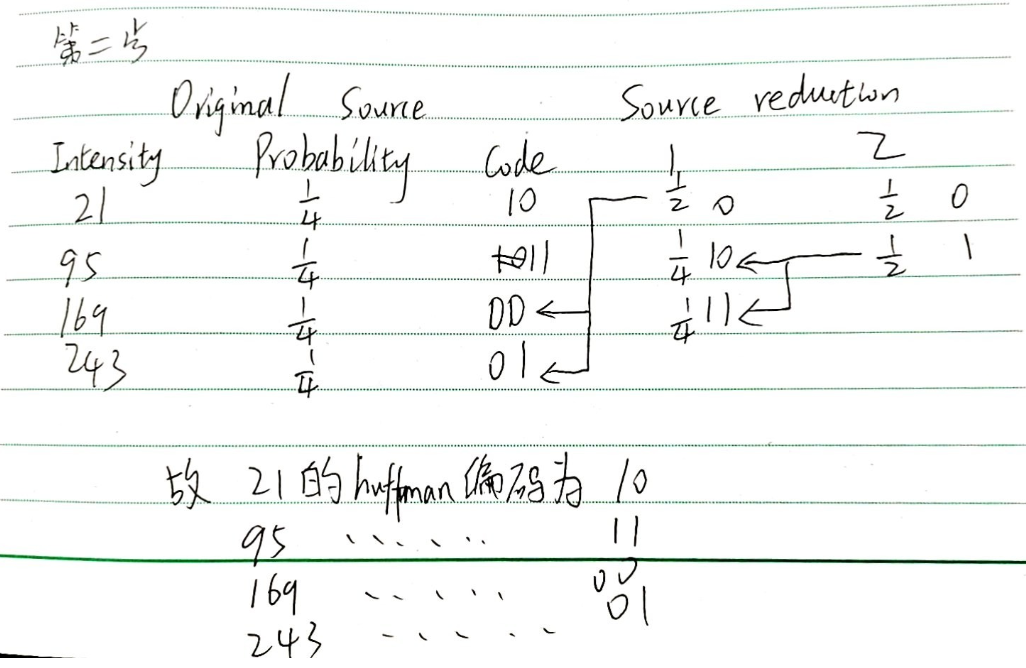 第二步
Original Source Source reduction
Intensity Probability Code 1 2
21 1/4 10 1/2 0 1/2 0
95 1/4 11 1/4 10 1/2 1
169 1/4 00 1/4 11
243 1/4 01
故 21的huffman编码为 10
95 ...... 11
169 ...... 00
243 ...... 01